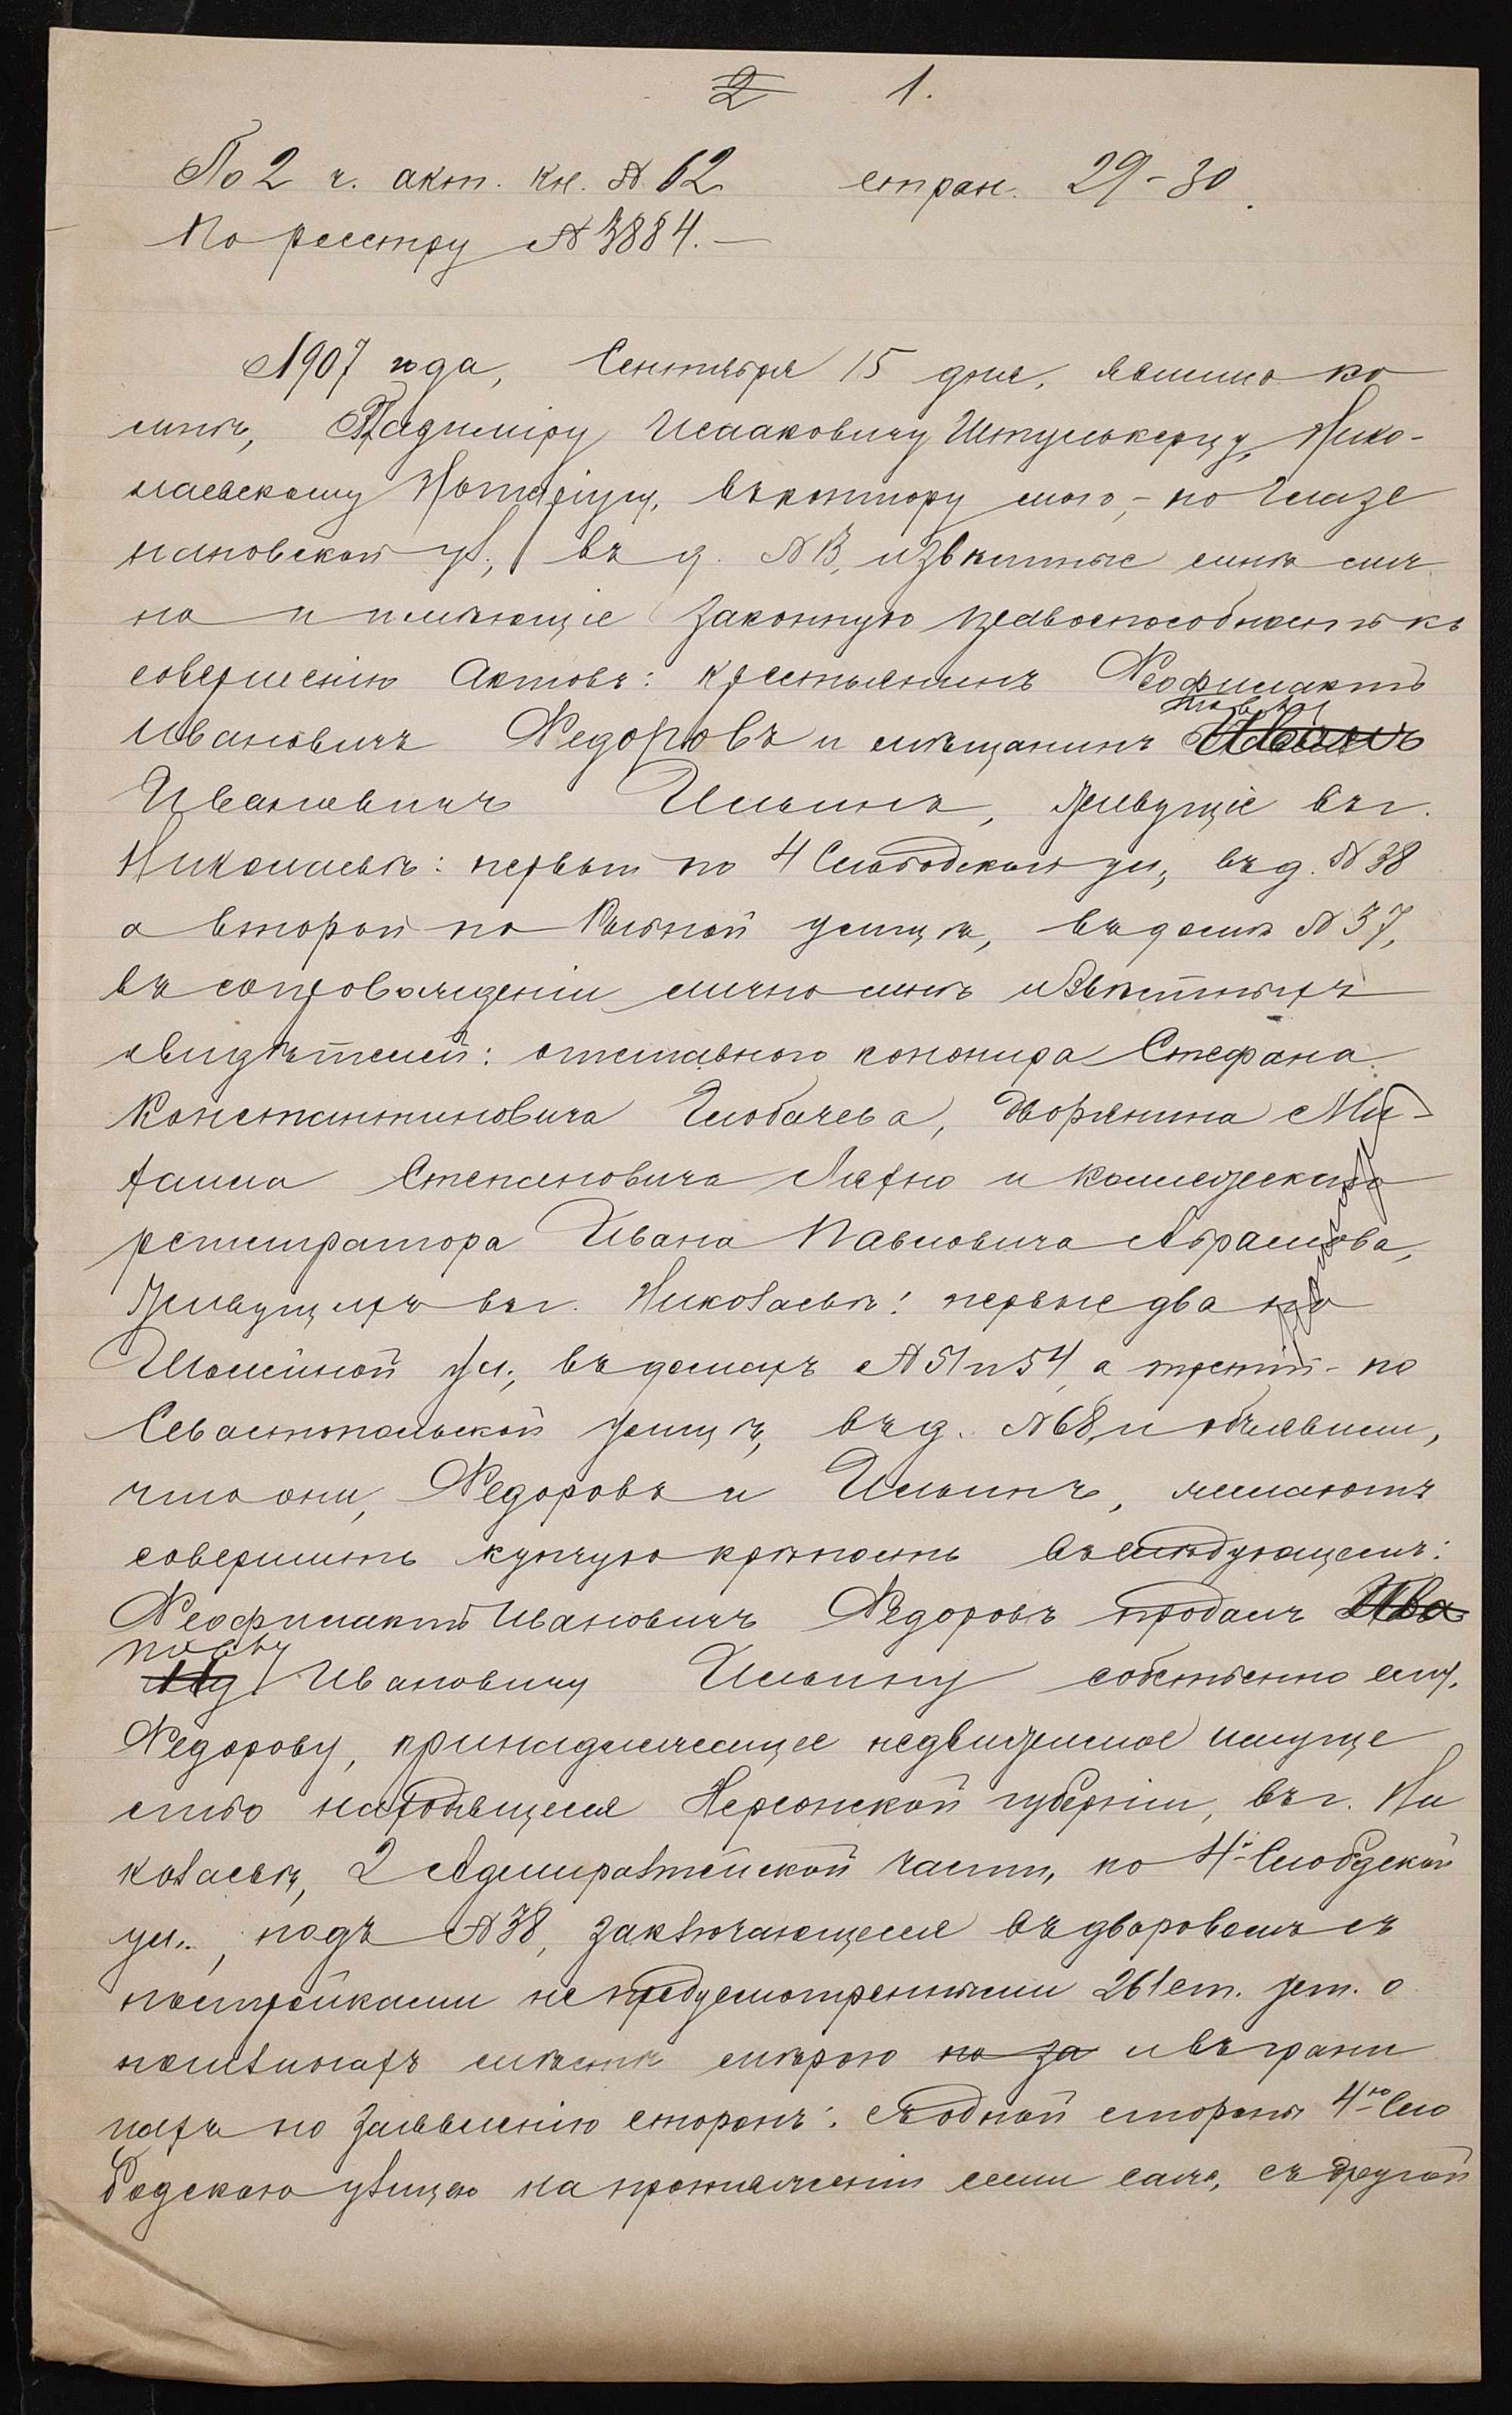 2 1.
По 2 ч. акт. кн. № 62 стран. 29-30.
По реестру № 3884.—
1907 года, Сентября 15 дня, явились ко
мнѣ, Исааковичу Нико-
лаевскому Нотаріусу, въ контору мою,- по Глазе
наповской ул., въ д. № 13, извѣстные мнѣ лич
но и имѣющіе законную правоспособность къ
совершенію актовъ: крестьянинъ Феофилактъ
Ивановичъ Федоровъ и мѣщанинъ Иванъ
Ивановичъ Ильинъ, живущіе въ г.
Николаевѣ: первый по 4 Слободской ул., въ д. № 38
а второй по улицѣ, въ домѣ № 37,
въ сопровожденіи лично мнѣ извѣстныхъ
свидѣтелей: отставного канонира Стефана
Константиновича Глобачева, дворянина Ми-
хаила Степановича и Коллежскаго
регистратора Ивана Павловича Абрамова,
живущихъ въ г. Николаевѣ: первые два по
ул., въ домахъ № 51 и 54, а третій - по
Севастопольской улицѣ, въ д. № 68, и объявили,
что они, Федоровъ и Ильинъ, желаютъ
совершить купчую крѣпость въ слѣдующемъ:
Феофилактъ Ивановичъ Федоровъ продалъ Ива
ну Ивановичу Ильину собственно ему,
Федорову, принадлежащее недвижимое имуще
ство находящееся Херсонской губерніи, въ г. Ни
колаевѣ, 2 Адмиралтейской части, по 4й Слободской
ул., подъ № 38, заключающееся въ дворовомъ съ
постройками не предусмотренными 261 ст. уст. о
пошлинахъ мѣстѣ мѣрою по за и въ грани
цахъ по заявленію сторонъ: съ одной стороны 4ю Сло
бодскою улицею на протяженіи семи саж., съ другой